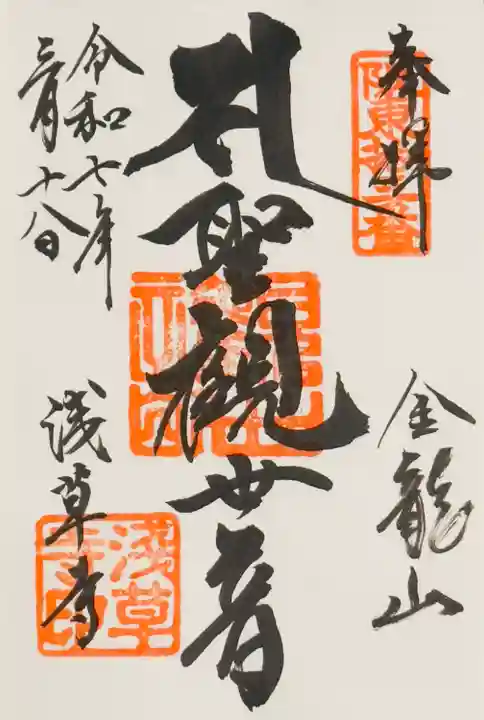 奉拝
坂東拾三番
金龍山
聖観世音
令和七年
三月十八日
浅草寺
浅草寺印